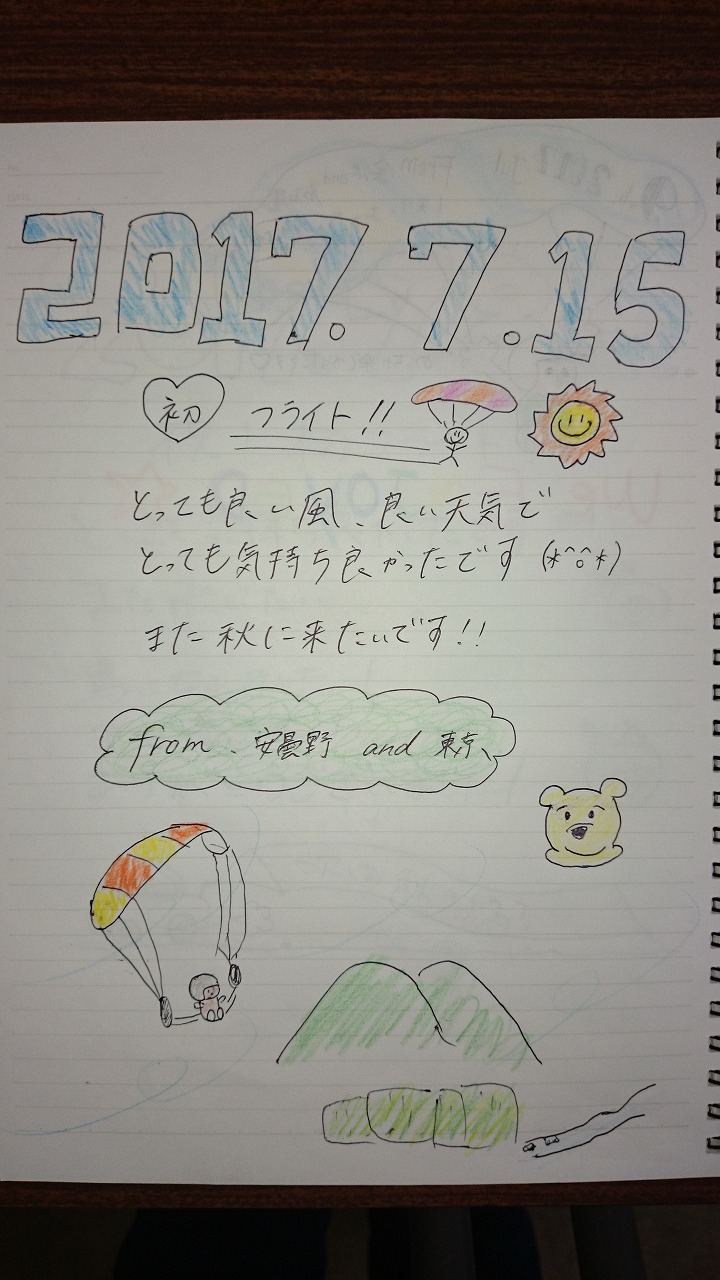 2017.7.15
初 フライト!!
とっても良い風、良い天気で
とっても気持ち良かったです (*^o^*)
また秋に来たいです!!
from、安曇野 and 東京、